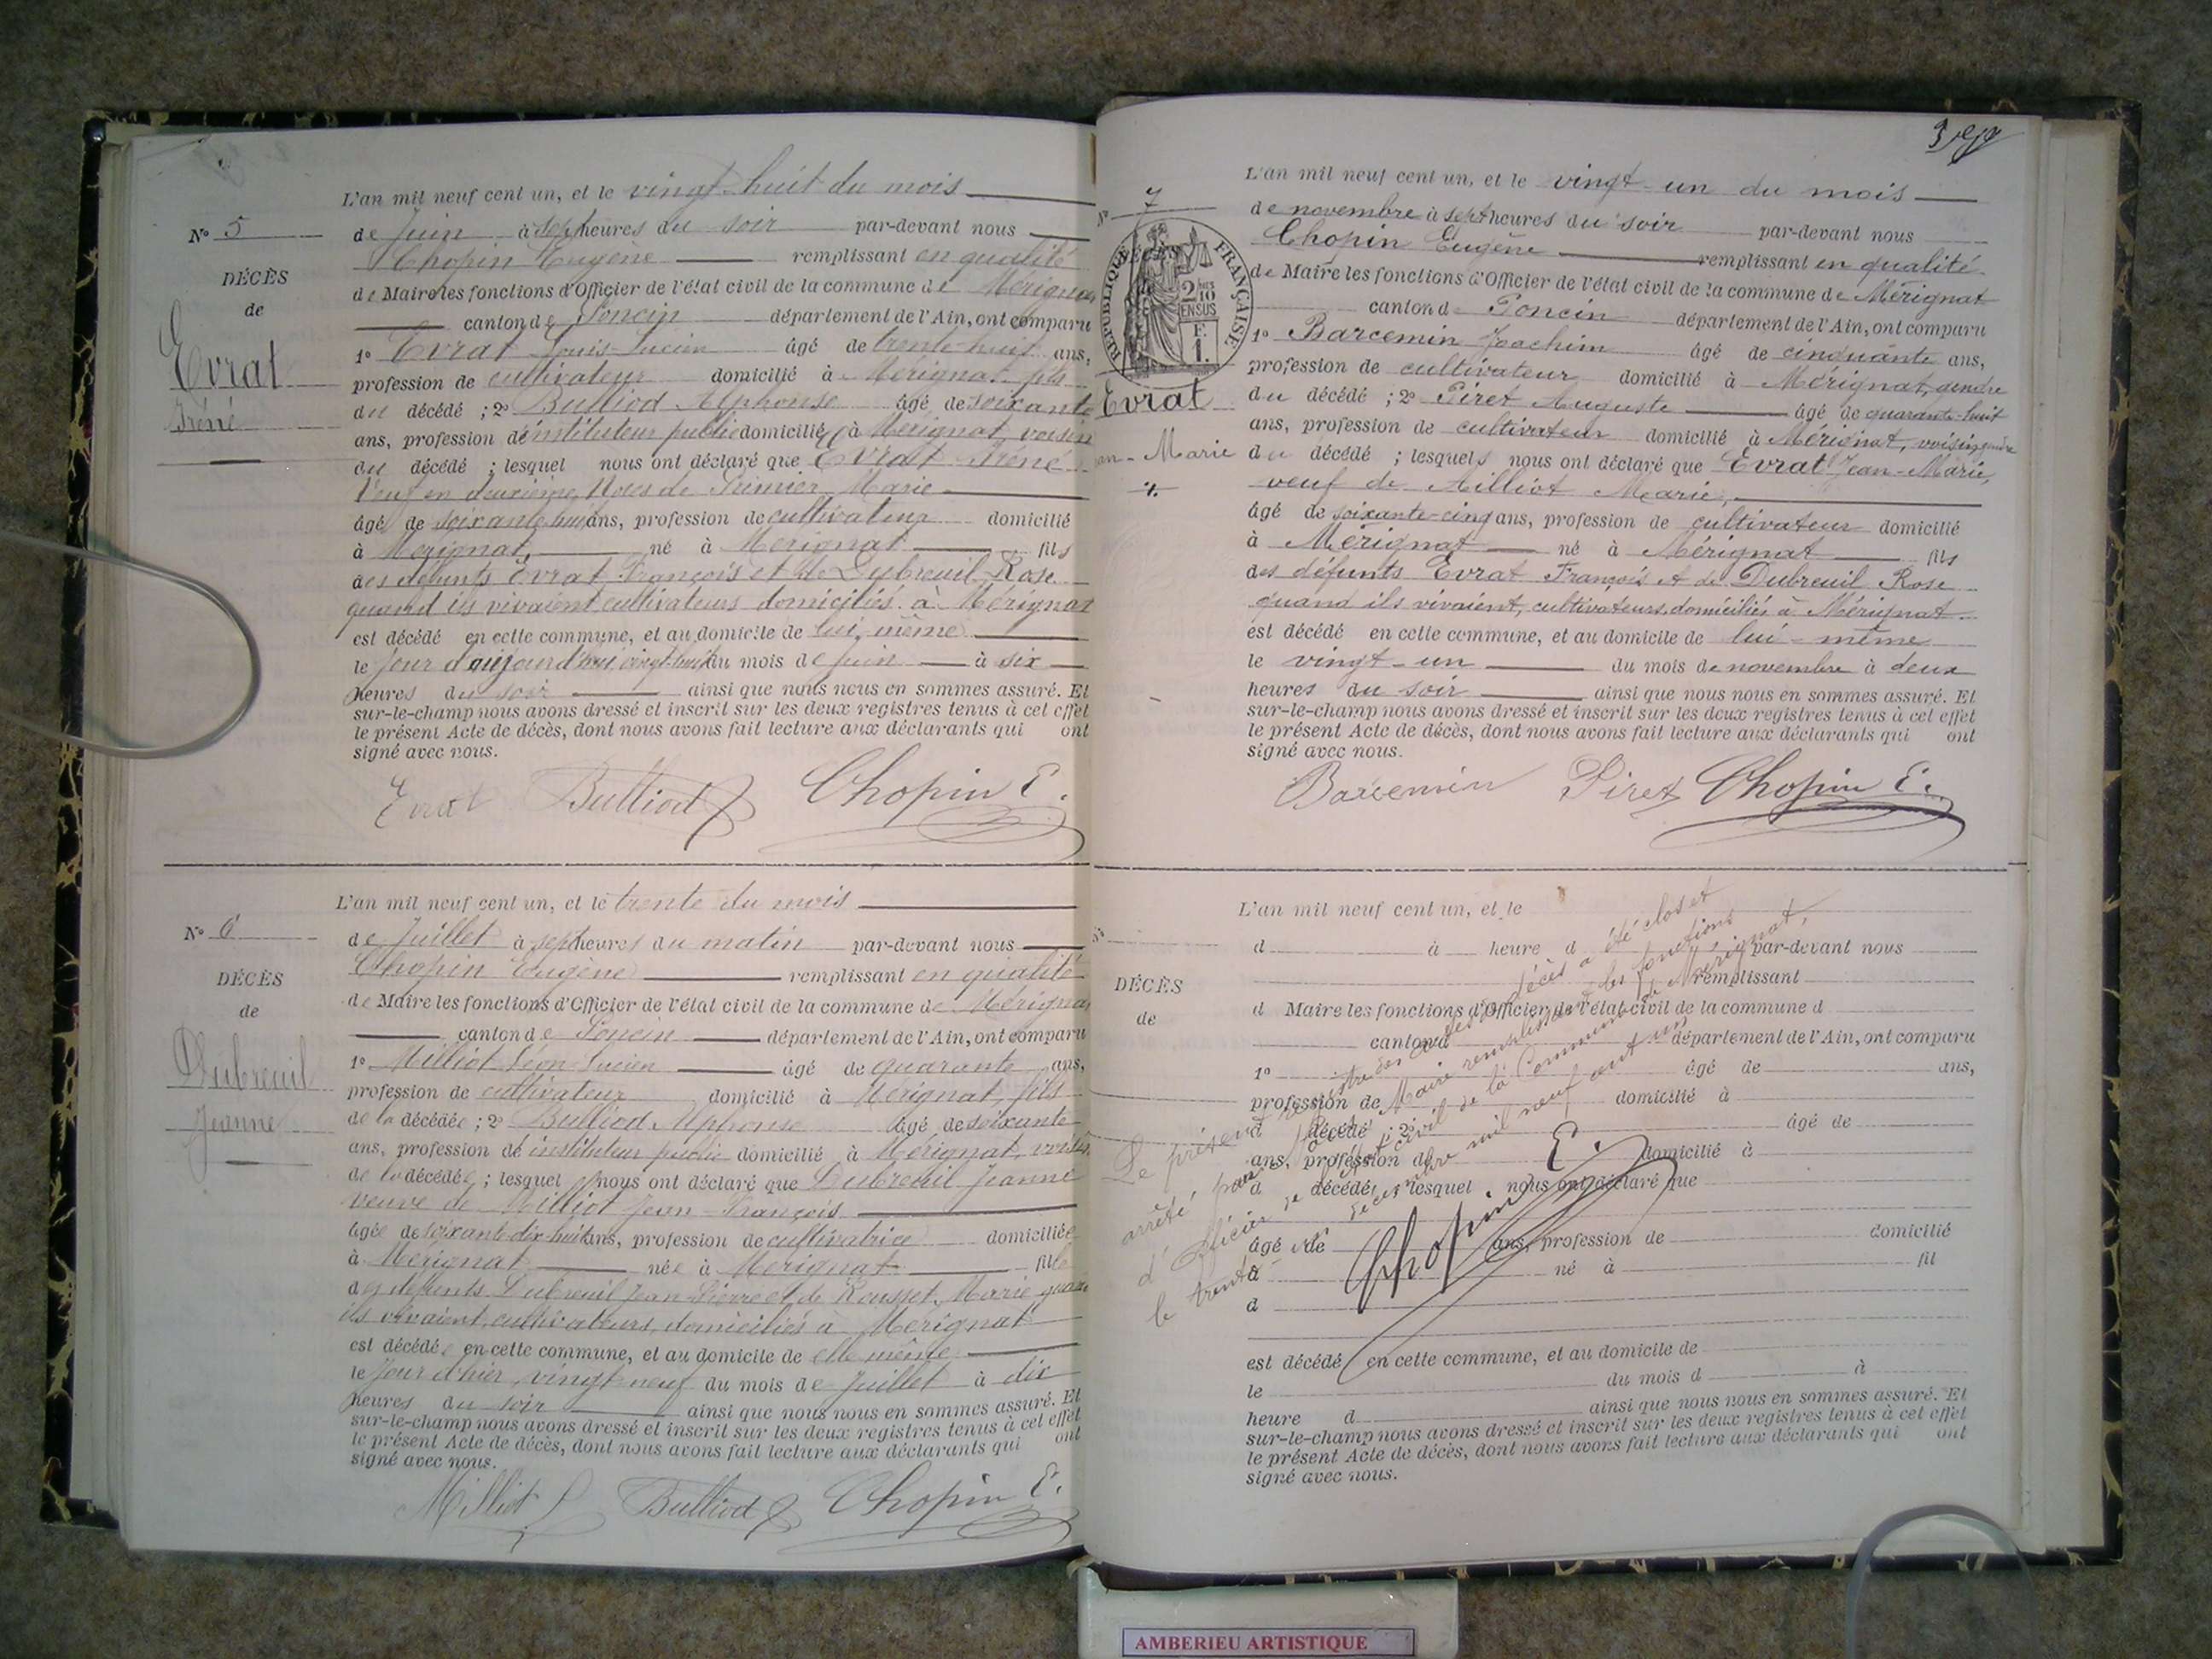 L'an mil neuf cent un, et le vingt-huit du mois
N° 5
de Juin à sept heures du soir par-devant nous
Chopin Eugène remplissant en qualité
DÉCÈS
de Maire les fonctions d'Officier de l'état civil de la commune de Mérignat
de
canton de Poncin département de l'Ain, ont comparu
Evrat
1° Evrat Louis-Lucien âgé de trente-huit ans,
profession de cultivateur domicilié à Mérignat, fils
Iréné
du décédé ; 2° Bulliod Alphonse âgé de soixante
ans, profession d'instituteur public domicilié à Mérignat, voisin
du décédé ; lesquel nous ont déclaré que Evrat Iréné
Veuf en deuxième Noces de Marie
âgé de soixante-huit ans, profession de cultivateur domicilié
à Mérignat, né à Mérignat fils
des défunts Evrat François et de Dubreuil Rose
quand ils vivaient cultivateurs domiciliés à Mérignat
est décédé en cette commune, et au domicile de lui-même
le jour d'aujourd'hui, vingt-huit du mois de juin à six
heures du soir ainsi que nous nous en sommes assuré. Et
sur-le-champ nous avons dressé et inscrit sur les deux registres tenus à cet effet
le présent Acte de décès, dont nous avons fait lecture aux déclarants qui ont
signé avec nous.
Evrat Bulliod Chopin E.
L'an mil neuf cent un, et le trente du mois
N° 6
de Juillet à sept heures du matin par-devant nous
Chopin Eugène remplissant en qualité
DÉCÈS
de Maire les fonctions d'Officier de l'état civil de la commune de Mérignat
de
canton de Poncin département de l'Ain, ont comparu
Dubreuil
1° Milliot Léon Lucien âgé de quarante ans,
profession de cultivateur domicilié à Mérignat, fils
Jeanne
de la décédée ; 2° Bulliod Alphonse âgé de soixante
ans, profession de instituteur public domicilié à Mérignat, voisin
de la décédée ; lesquel nous ont déclaré que Dubreuil Jeanne
veuve de Milliot Jean-François
âgée de soixante-dix-huit ans, profession de cultivatrice domiciliée
à Mérignat née à Mérignat fille
des défunts Dubreuil Jean-Pierre et de Rousset Marie quand
ils vivaient, cultivateurs, domiciliés à Mérignat
est décédée en cette commune, et au domicile de elle même
le jour d'hier, vingt neuf du mois de Juillet à dix
heures du soir ainsi que nous nous en sommes assuré. Et
sur-le-champ nous avons dressé et inscrit sur les deux registres tenus à cet effet
le présent Acte de décès, dont nous avons fait lecture aux déclarants qui ont
signé avec nous.
Milliot L Bulliod Chopin E.
L'an mil neuf cent un, et le vingt-un du mois
N° 7
de novembre à sept heures du soir par-devant nous
Chopin Eugène remplissant en qualité
RÉPUBLIQUE FRANÇAISE
2/10 EN SUS
F. 1.
de Maire les fonctions d'Officier de l'état civil de la commune de Mérignat
canton de Poncin département de l'Ain, ont comparu
1° Barcemin Joachim âgé de cinquante ans,
profession de cultivateur domicilié à Mérignat, gendre
Evrat
du décédé ; 2° Piret Auguste âgé de quarante-huit
ans, profession de cultivateur domicilié à Mérignat, voisin
an-Marie
du décédé ; lesquels nous ont déclaré que Evrat Jean-Marie,
veuf de Milliot Marie,
âgé de soixante-cinq ans, profession de cultivateur domicilié
à Mérignat né à Mérignat fils
des défunts Evrat François et de Dubreuil Rose
quand ils vivaient, cultivateurs, domiciliés à Mérignat
est décédé en cette commune, et au domicile de lui-même
le vingt-un du mois de novembre à deux
heures du soir ainsi que nous nous en sommes assuré. Et
sur-le-champ nous avons dressé et inscrit sur les deux registres tenus à cet effet
le présent Acte de décès, dont nous avons fait lecture aux déclarants qui ont
signé avec nous.
Barcemin Piret Chopin E.
L'an mil neuf cent un, et le
N°
d à heure d par-devant nous
remplissant
DÉCÈS
d Maire les fonctions d'Officier de l'état civil de la commune d
de
canton d département de l'Ain, ont comparu
1° âgé de ans,
profession de domicilié à
d décédé ; 2° âgé de
ans, profession de domicilié à
d décédé ; lesquel nous ont déclaré que
âgé de ans, profession de domicilié
à né à fil
d
est décédé en cette commune, et au domicile de
le du mois d à
heure d ainsi que nous nous en sommes assuré. Et
sur-le-champ nous avons dressé et inscrit sur les deux registres tenus à cet effet
le présent Acte de décès, dont nous avons fait lecture aux déclarants qui ont
signé avec nous.
Le présent registre des actes de décès a été clos et
arrêté par nous Maire remplissant les fonctions
d'Officier de l'état civil de la Commune de Mérignat,
le trente décembre mil neuf cent un
Chopin E.
AMBERIEU ARTISTIQUE